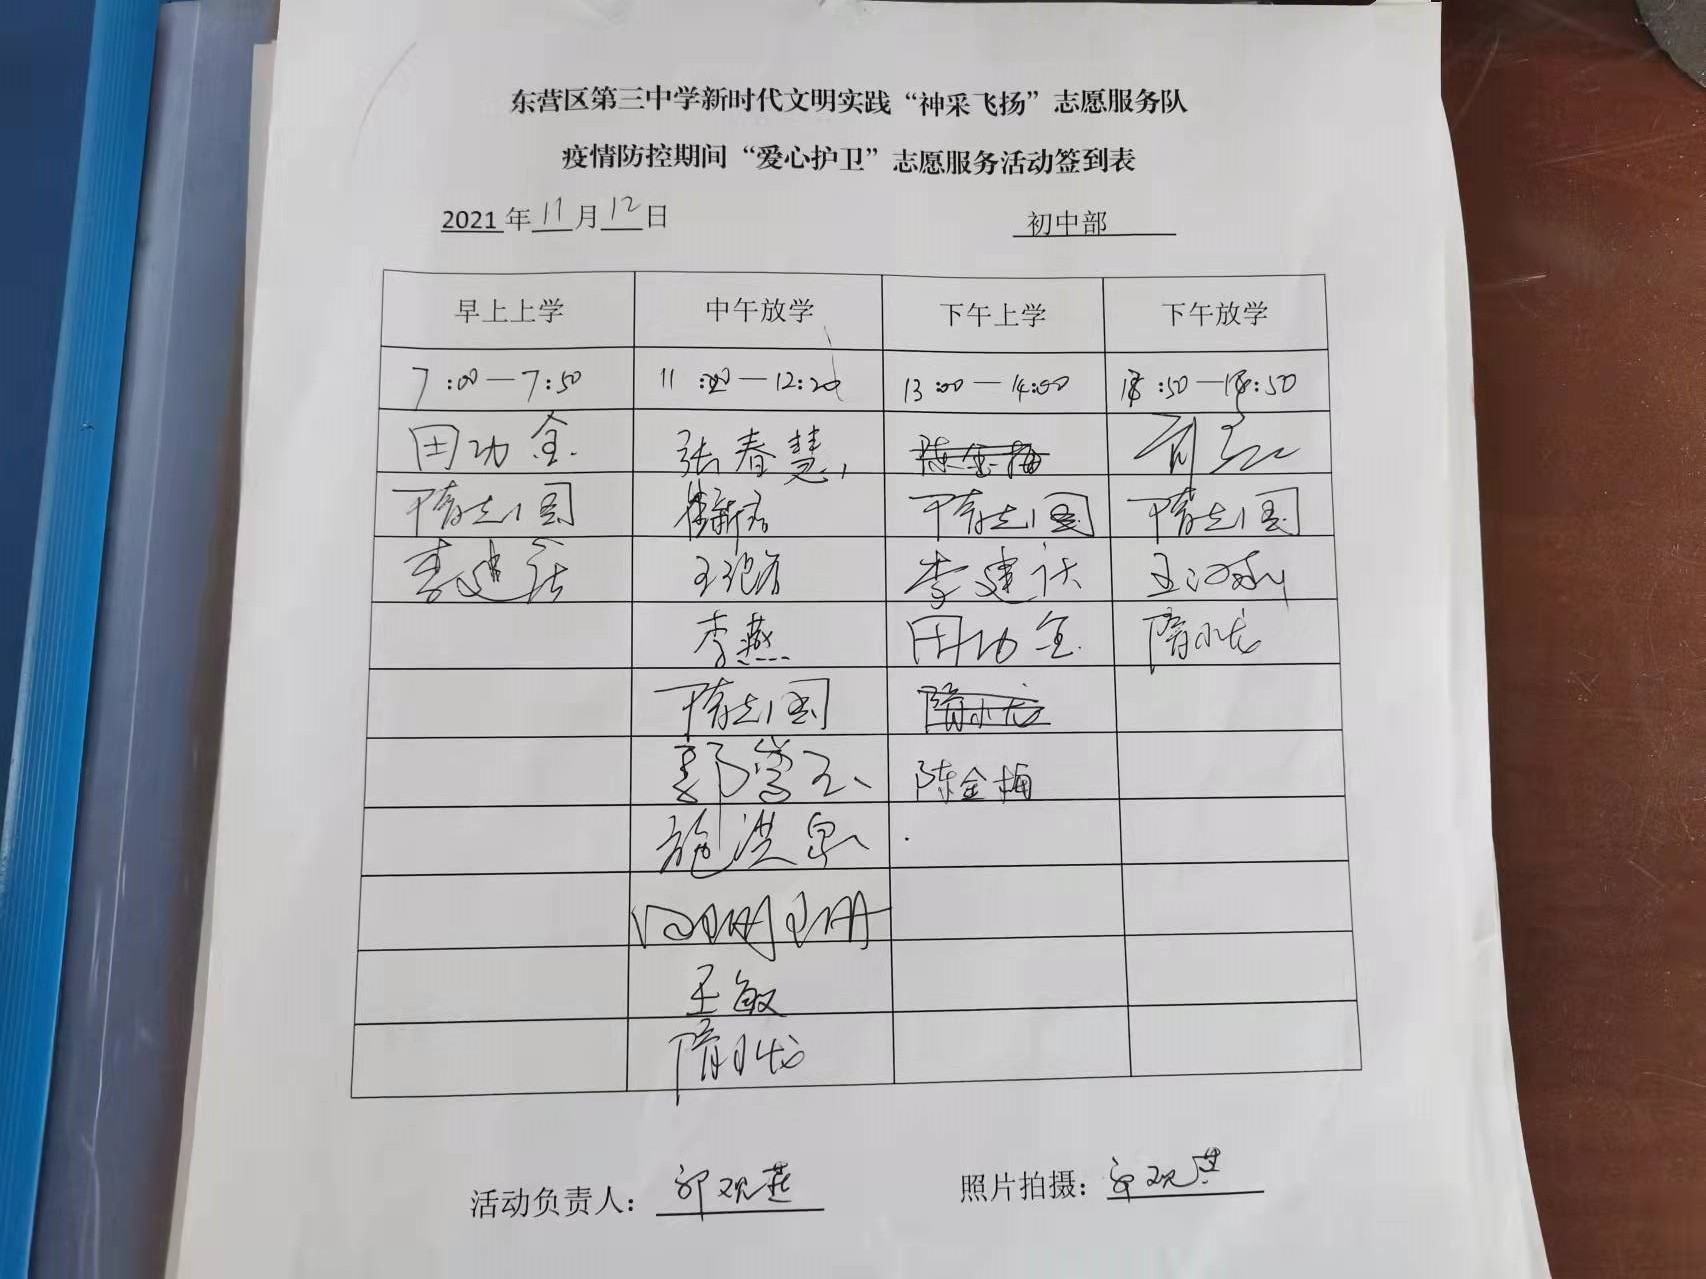 东营区第三中学新时代文明实践“神采飞扬”志愿服务队
疫情防控期间“爱心护卫”志愿服务活动签到表
2021年11月12日 初中部
早上上学 中午放学 下午上学 下午放学
7:00—7:50 11 —12:20 13:00—14:00 :50— :50
田功全 张春慧 陈金梅
隋志国 隋志国 隋志国
李建 李建
李燕 田功全 隋小龙
隋志国 隋小龙
郭 陈金梅
施洪泉
王敏
隋小龙
活动负责人：郭观燕 照片拍摄：郭观燕